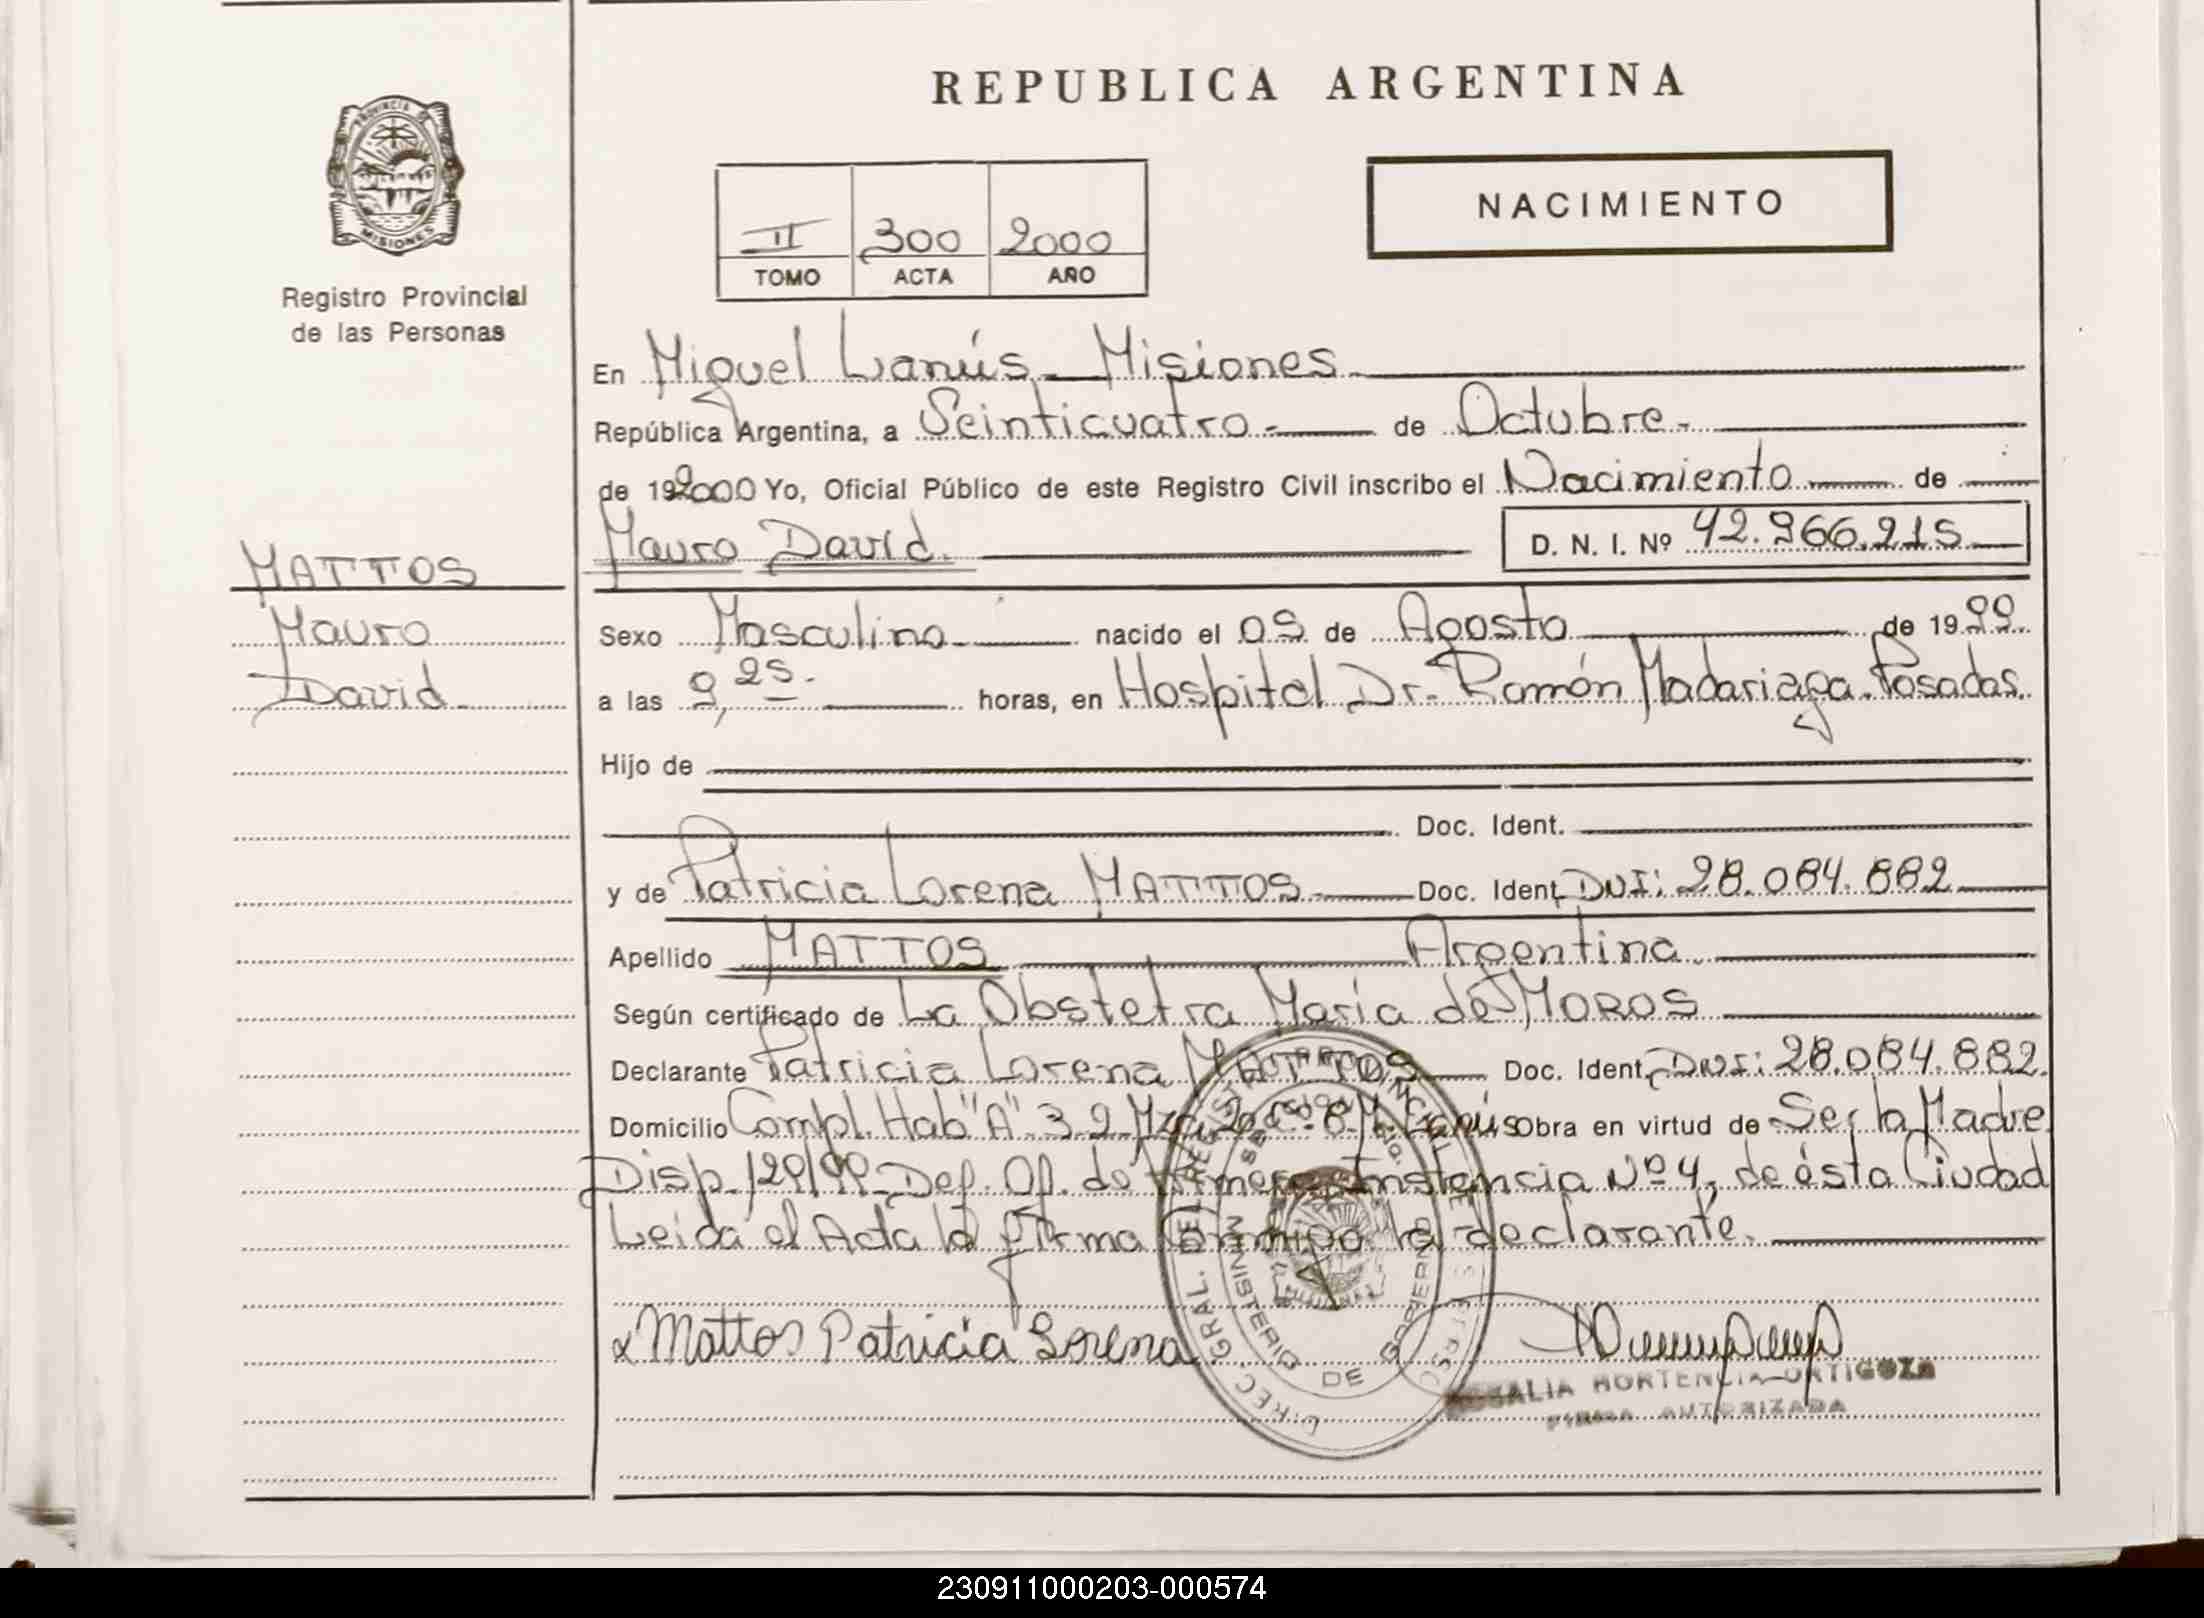 REPUBLICA ARGENTINA
PROVINCIA DE
MISIONES
Registro Provincial
de las Personas
II 300 2000
TOMO ACTA AÑO
NACIMIENTO
En Miguel Lanús - Misiones
República Argentina, a Veinticuatro.- de Octubre.-
de 192000 Yo, Oficial Público de este Registro Civil inscribo el Nacimiento de
Mauro David. D. N. I. Nº 42.966.215
MATTOS
Mauro
David
Sexo Masculino nacido el 09 de Agosto de 1999.
a las 9,25. horas, en Hospital Dr. Ramón Madariaga. Posadas.
Hijo de
Doc. Ident.
y de Patricia Lorena MATTOS Doc. Ident. DNI: 28.084.882
Apellido MATTOS Argentina
Según certificado de La Obstetra María de MOROS
Declarante Patricia Lorena MATTOS Doc. Ident. DNI: 28.084.882.
Domicilio Compl. Hab "A" 3.2 Mza Lanús Obra en virtud de Ser la Madre
Disp. 129/99 Def. Of. de Primera Instancia Nº 4, de ésta Ciudad
Leida el Acta la firma Conmigo la declarante.
x Mattos Patricia Lorena
DIREC. GRAL. DEL REGISTRO PROVINCIAL DE LAS PERSONAS
MINISTERIO DE GOBIERNO
ROSALIA HORTENCIA ORTIGOZA
FIRMA AUTORIZADA
230911000203-000574